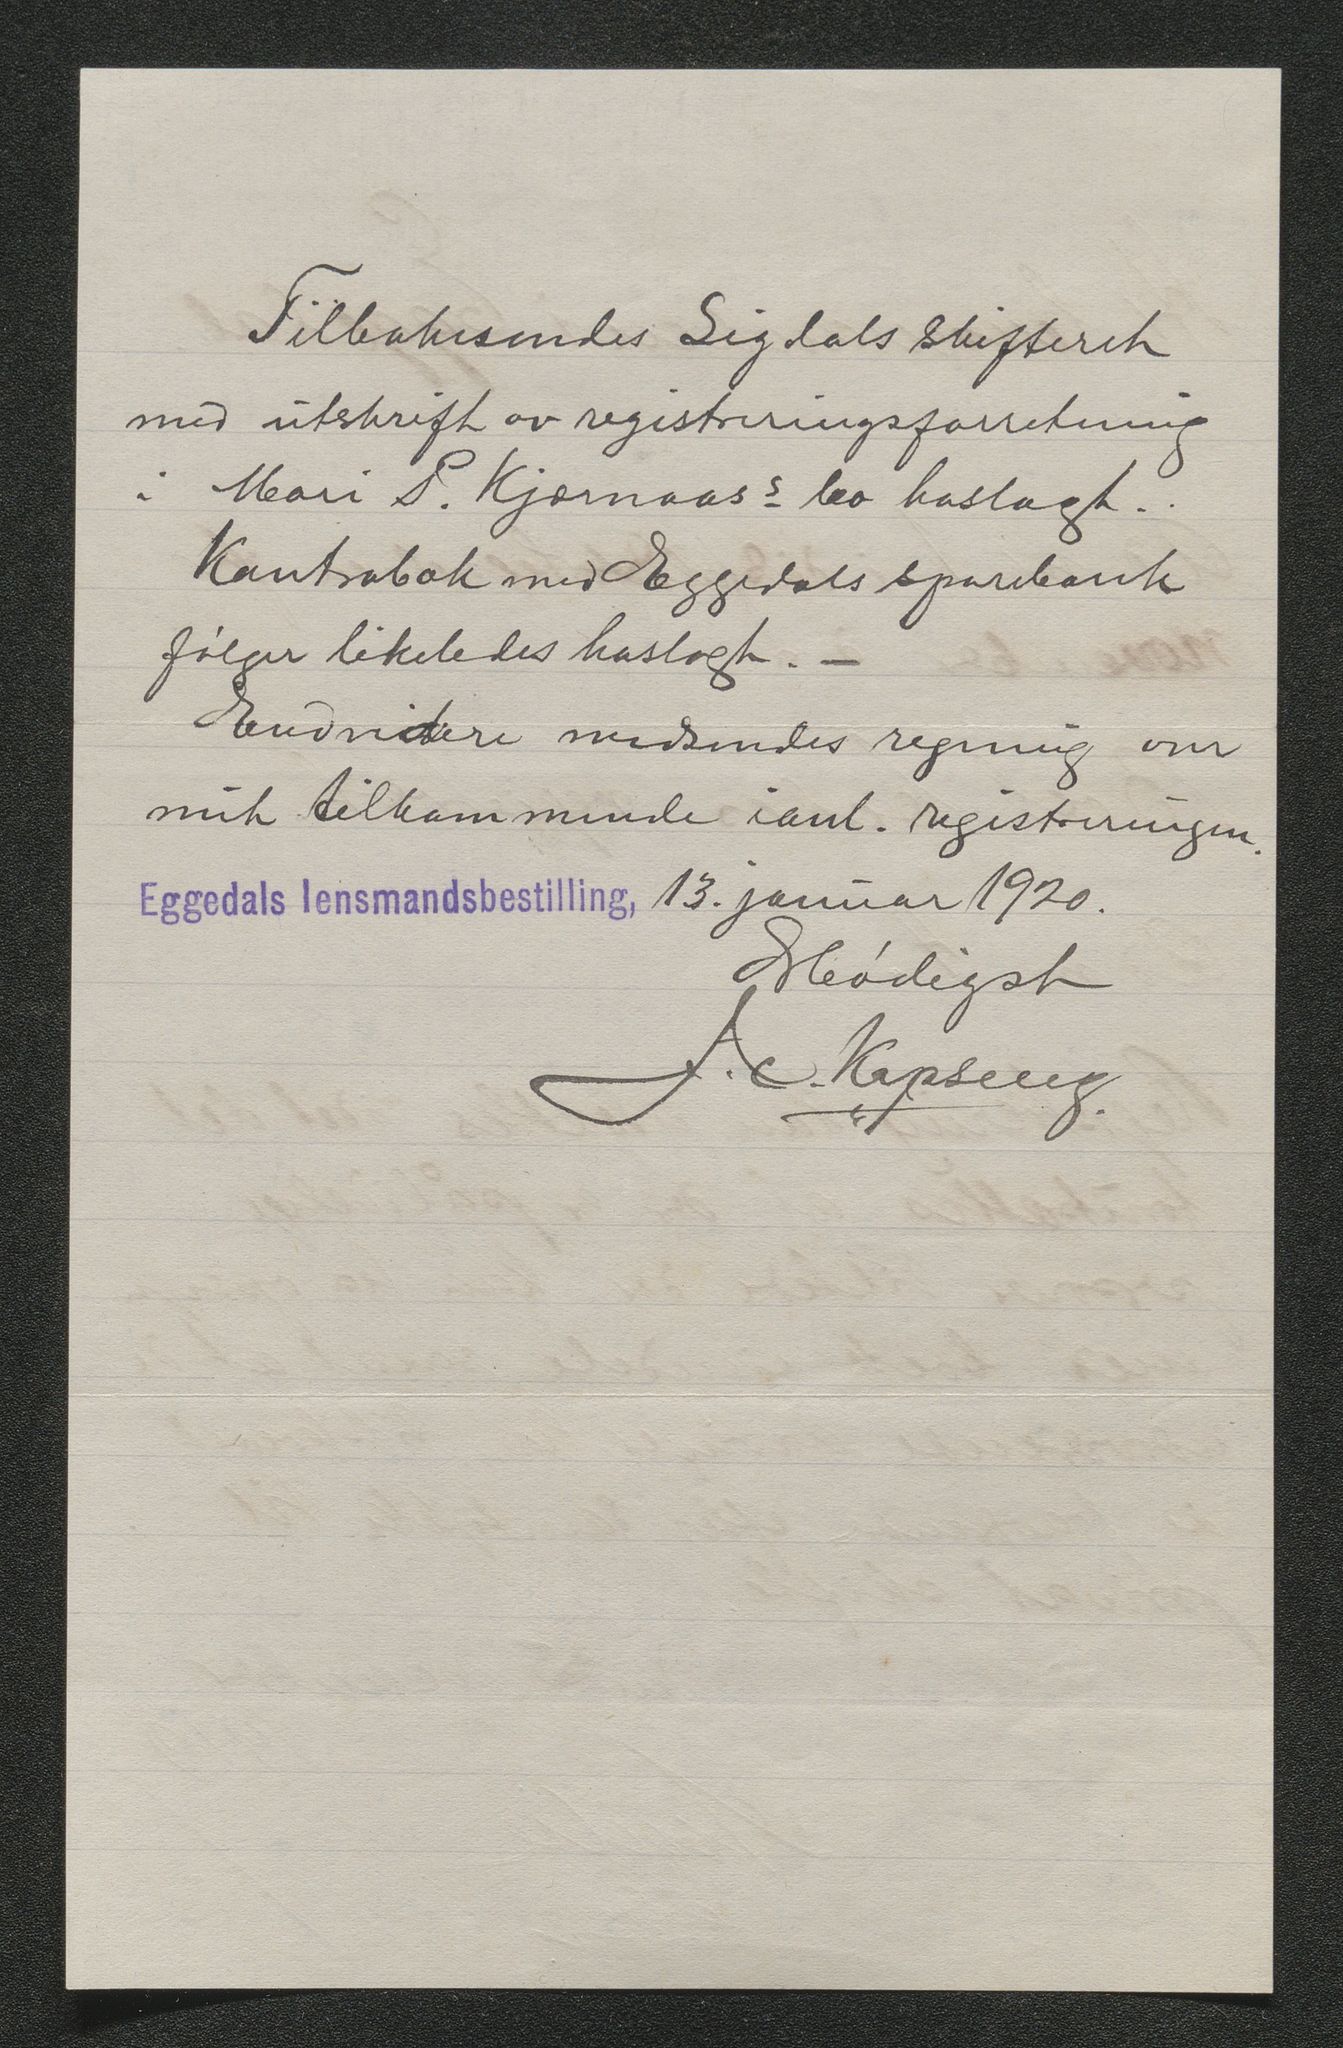 Tilbakesendes Sigdals skifteret
med utskrift av registreringsforretning
i Mari P. Kjørnaas s bo haslagt.
Kontrabok med Eggedals sparebank
følger likeledes haslagt. —
Endvidere medsendes regning over
mit tilkommende i anl. registreringen.
Eggedals lensmandsbestilling, 13. januar 1920.
Ærbødigst
A. C. Kopseng.